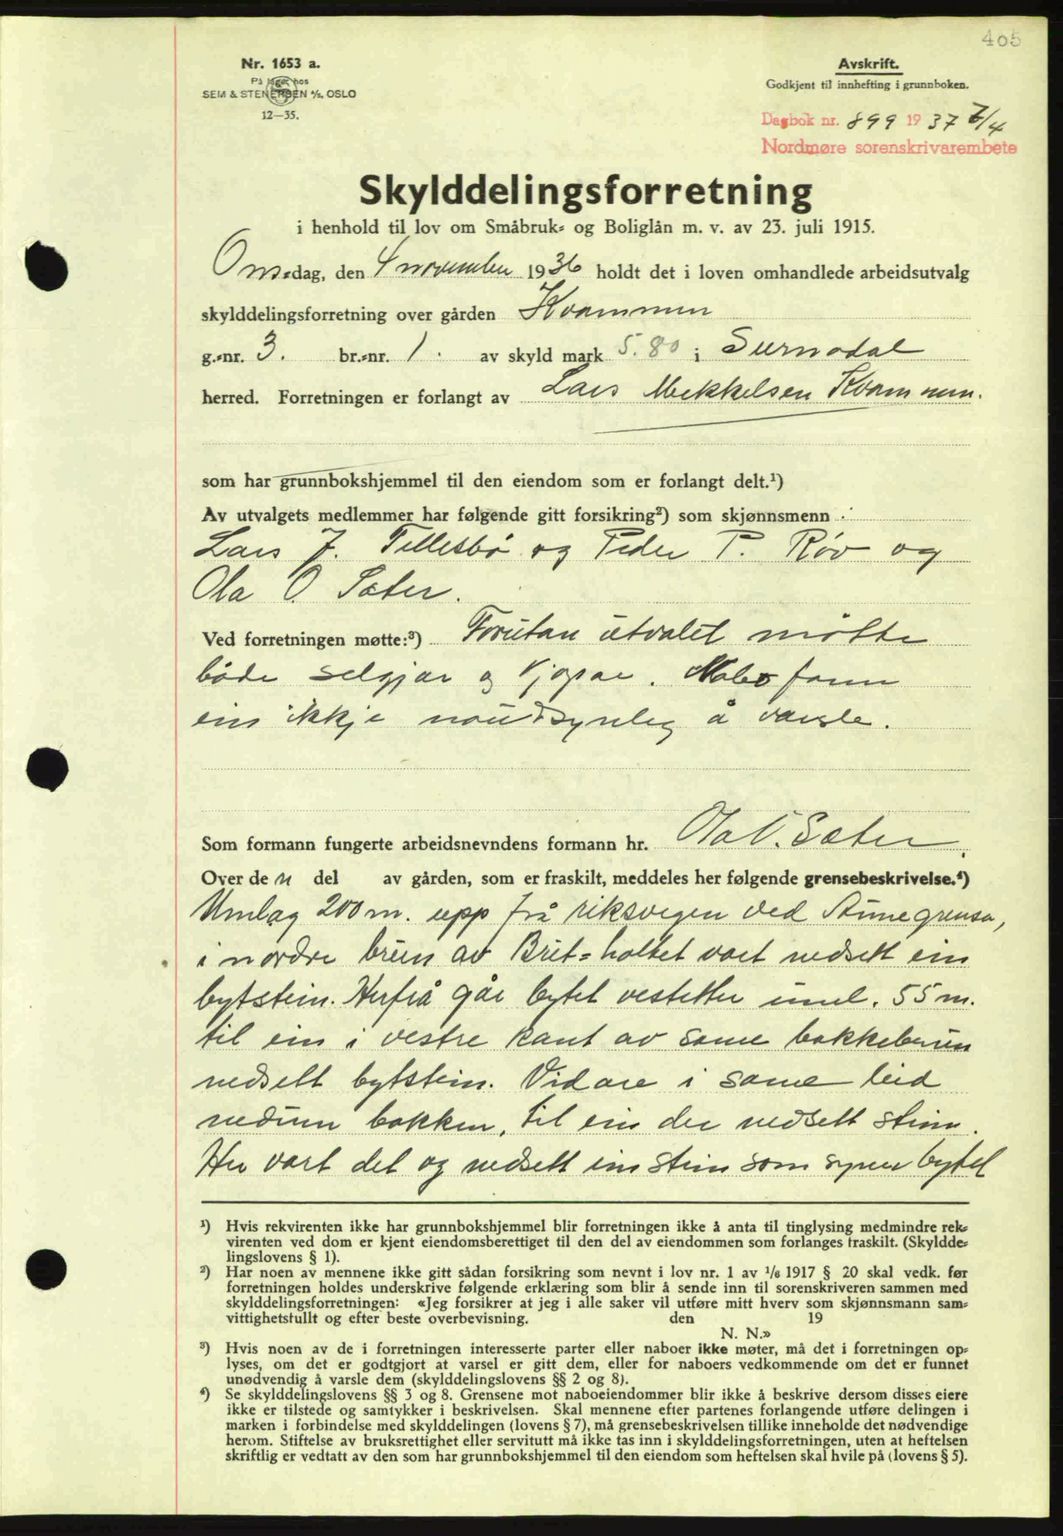 405
Nr. 1653 a.
På lager hos
SEM & STENERSEN A/S, OSLO
12—35.
Avskrift.
Godkjent til innhefting i grunnboken.
Dagbok nr. 899 1937 7/4
Nordmøre sorenskrivarembete
Skylddelingsforretning
i henhold til lov om Småbruk- og Boliglån m. v. av 23. juli 1915.
Onsdag, den 4 november 1936 holdt det i loven omhandlede arbeidsutvalg
skylddelingsforretning over gården Kvammen
g.-nr. 3. br.-nr. 1. av skyld mark 5.80 i Surnadal
herred. Forretningen er forlangt av Lars Mikkelsen Kvammen.
som har grunnbokshjemmel til den eiendom som er forlangt delt.¹)
Av utvalgets medlemmer har følgende gitt forsikring²) som skjønnsmenn :
Lars J. Tellesbø og Peder P. Røv og
Ola O. Sæter.
Ved forretningen møtte:³) Forutan utvalet møtte
både seljar og kjøpar. Nabo fann
ein ikkje naudsynleg å varsle.
Som formann fungerte arbeidsnevndens formann hr. Ola O. Sæter.
Over den del av gården, som er fraskilt, meddeles her følgende grensebeskrivelse.⁴)
Umlag 200 m. upp frå riksvegen ved Stinegrensa,
i nordre brun av Brit-holtet vart nedsett ein
bytstein. Herfrå går bytet vestetter uml. 55 m.
til ein i vestre kant av same bakkebrun
nedsett bytstein. Vidare i same leid
nedum bakken, til ein der nedsett stein.
Her vart det og nedsett ein stein som syner bytet
¹) Hvis rekvirenten ikke har grunnbokshjemmel blir forretningen ikke å anta til tinglysing medmindre rek-
virenten ved dom er kjent eiendomsberettiget til den del av eiendommen som forlanges fraskilt. (Skyldde-
lingslovens § 1).
²) Har noen av mennene ikke gitt sådan forsikring som nevnt i lov nr. 1 av 1/6 1917 § 20 skal vedk. før
forretningen holdes underskrive følgende erklæring som blir å sende inn til sorenskriveren sammen med
skylddelingsforretningen: «Jeg forsikrer at jeg i alle saker vil utføre mitt hverv som skjønnsmann sam-
vittighetsfullt og efter beste overbevisning. den 19
N. N.»
³) Hvis noen av de i forretningen interesserte parter eller naboer ikke møter, må det i forretningen op-
lyses, om det er godtgjort at varsel er gitt dem, eller for naboers vedkommende om det er funnet
unødvendig å varsle dem (skylddelingslovens §§ 2 og 8).
⁴) Se skylddelingslovens §§ 3 og 8. Grensene mot naboeiendommer blir ikke å beskrive dersom disses eiere
ikke er tilstede og samtykker i beskrivelsen. Skal mennene efter partenes forlangende utføre delingen i
marken i forbindelse med skylddelingen (lovens § 7), må grensebeskrivelsen tillike inneholde det nødvendige
herom. Stiftelse av bruksrettighet eller servitutt må ikke tas inn i skylddelingsforretningen, uten at heftelsen
skriftlig er vedtatt av den som har grunnbokshjemmel til den eiendom som heftelsen skal hvile på (lovens § 5).